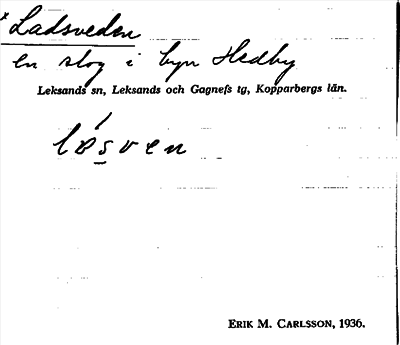 * Ladsveden
en skog i byn Hedby
Leksands sn, Leksands och Gagnefs tg, Kopparbergs län.
ERIK M. CARLSSON, 1936.